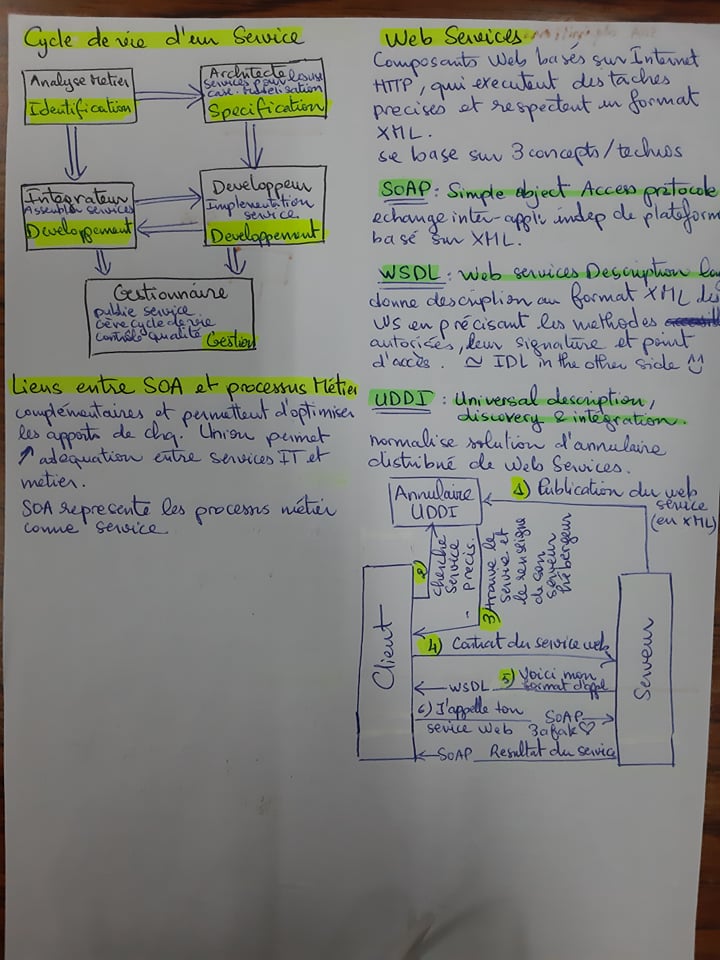 Cycle de vie d'un Service
Analyse Métier
Identification
Architecte
services pour
case. Modélisation
Specification
Integrateur
Assembler services
Developpement
Developpeur
Implementation
service
Developpement
Gestionnaire
publie service
Gère cycle de vie
contrôle qualité
Gestion
Liens entre SOA et processus Métier
complémentaires et permettent d'optimiser
les apports de chq. Union permet
↗ adequation entre services IT et
metier.
SOA represente les processus métier
comme service.
Web Services
Composants Web basés sur Internet
HTTP, qui executent des taches
precises et respectent un format
XML.
se base sur 3 concepts/technos
SOAP : Simple object Access protocole
echange inter-appli indep de plateform
basé sur XML.
WSDL : Web services Description la
donne description au format XML des
WS en précisant les methodes
autorises, leur signature et point
d'accès. ≃ IDL in the other side
UDDI : Universal description,
discovery & integration.
normalise solution d'annulaire
distribué de Web Services.
Annulaire
UDDI
1) Publication du web
service
(en XML)
2) cherche
service
precis.
3) trouve le
service et
le renseigne
de son
serveur
hébergeur
Client
Serveur
4) Contrat du service web
5) Voici mon
format d'appel
WSDL
6) J'appelle ton
service Web
SOAP
3afak ♡
SOAP Resultat du service